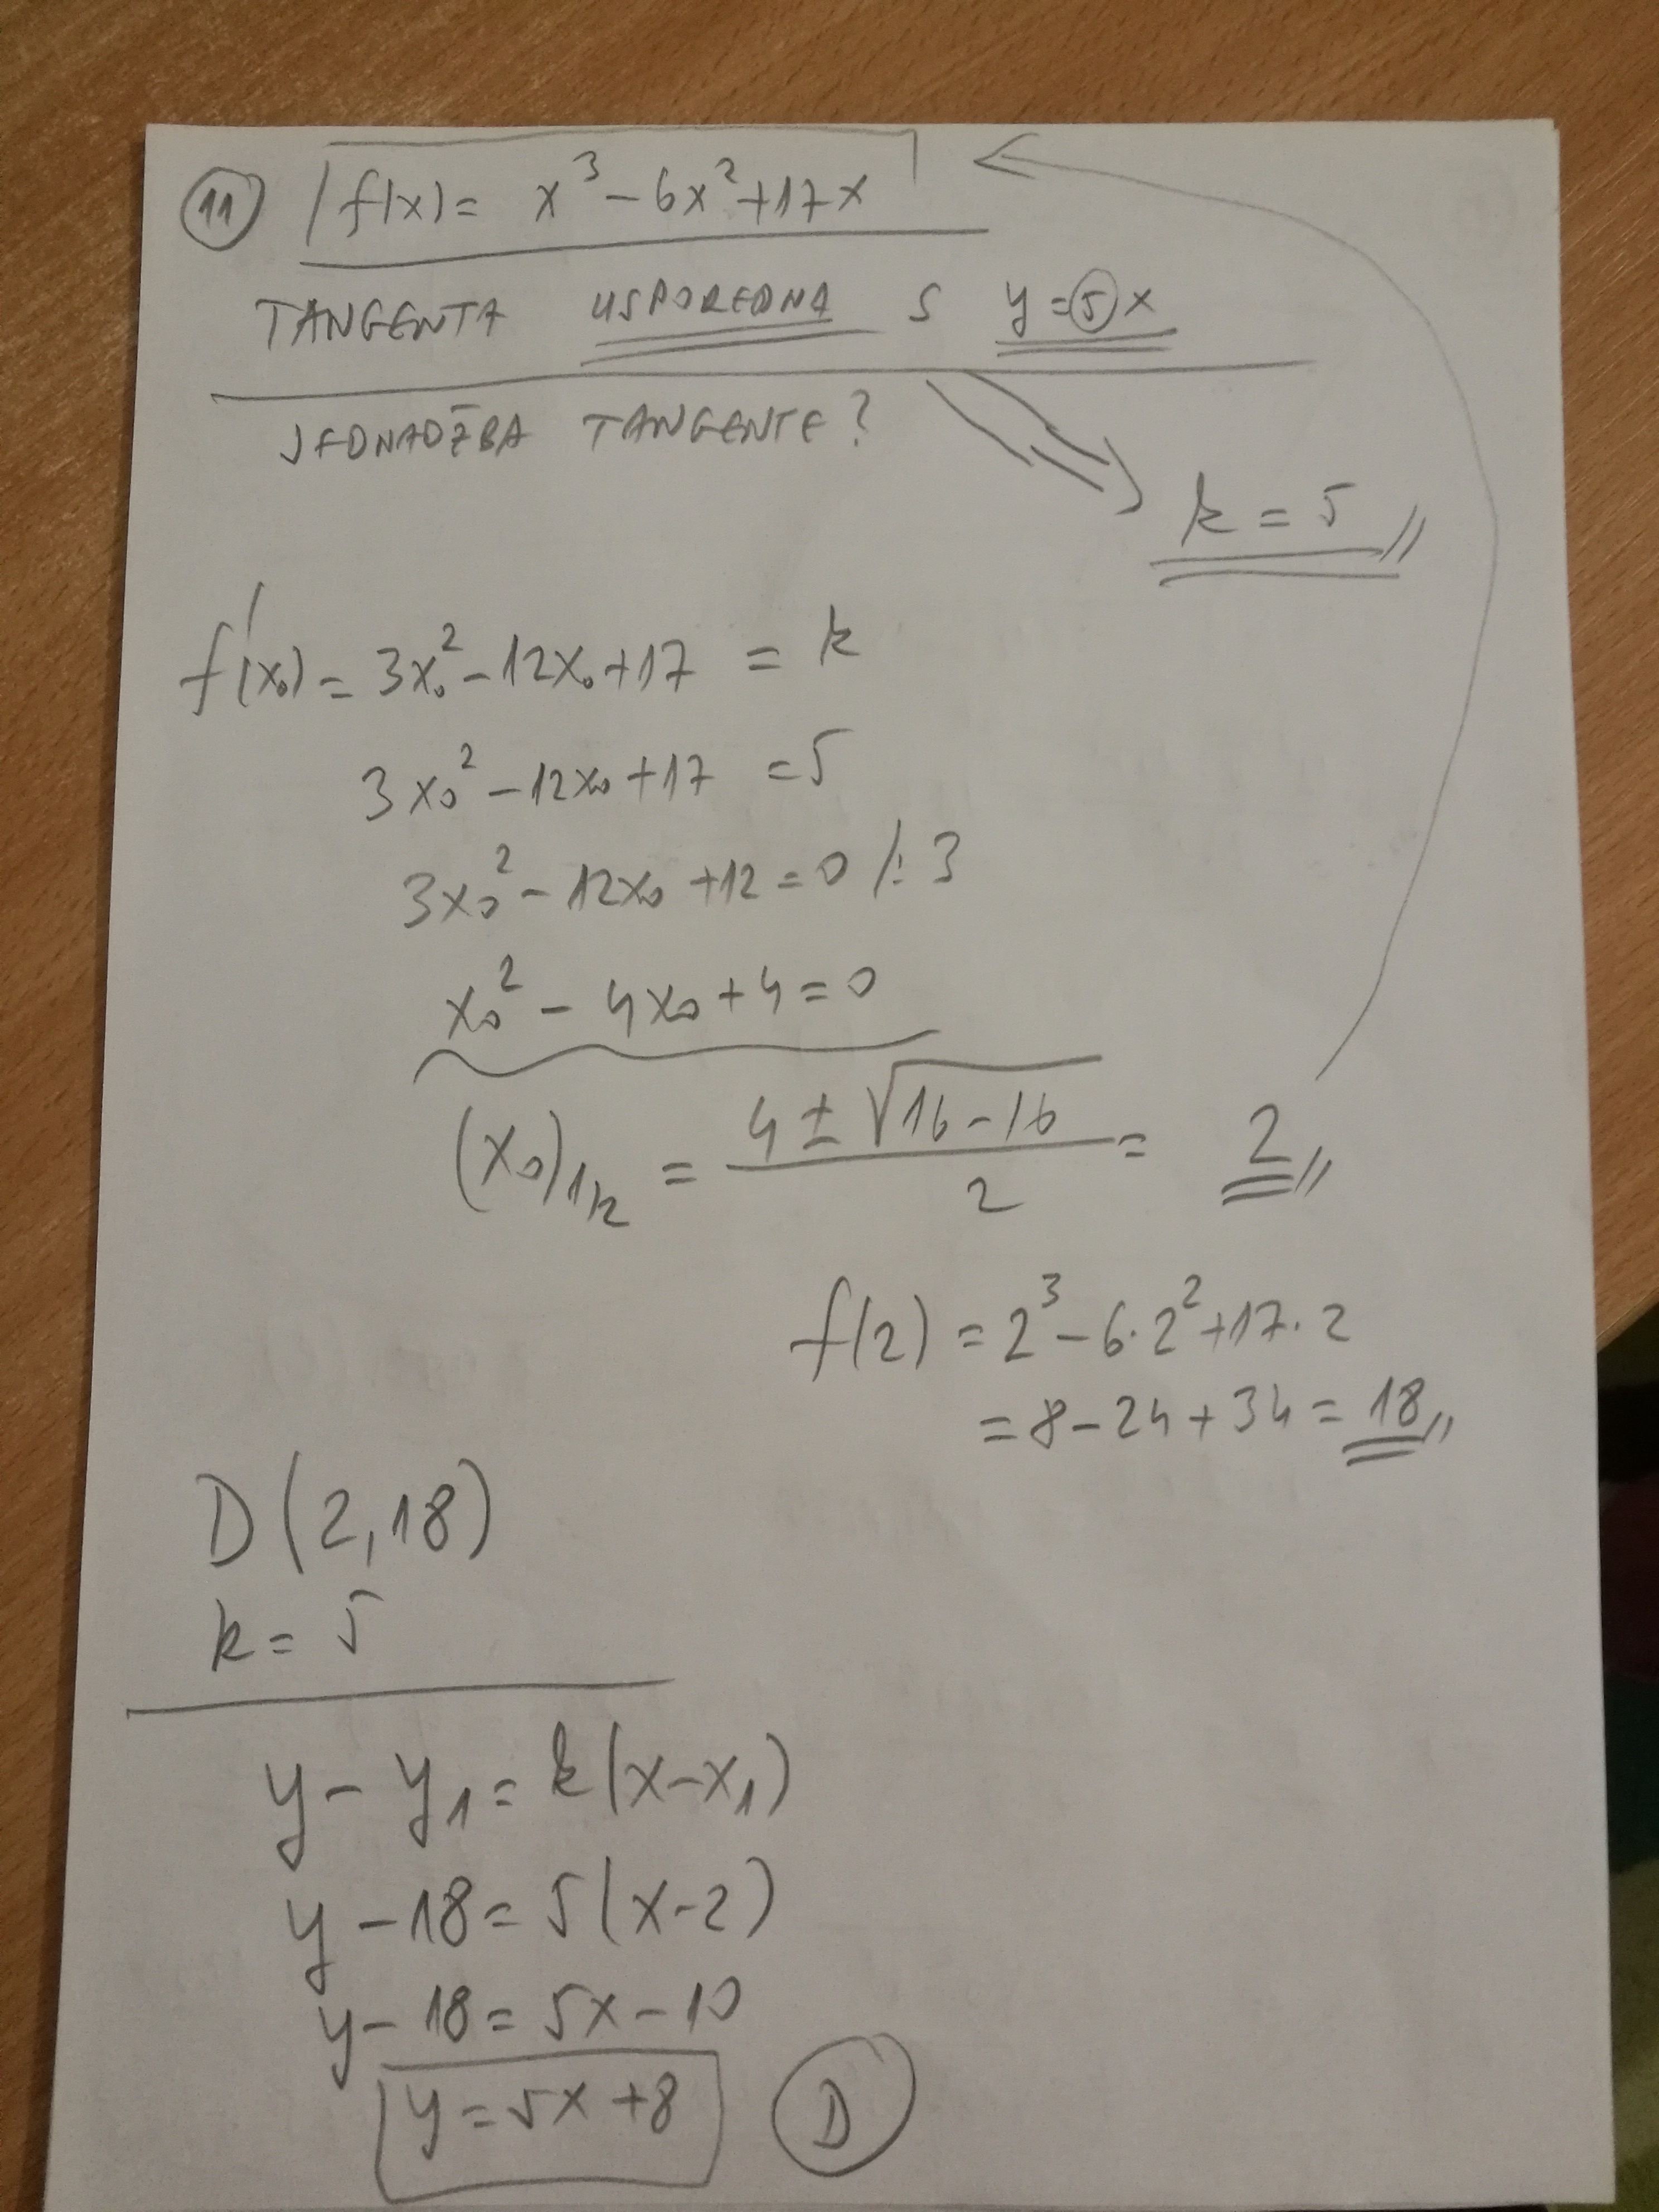 11 f(x) = x³ - 6x² + 17x
TANGENTA USPOREDNA S y = 5x
JEDNADŽBA TANGENTE?
k = 5
f'(x₀) = 3x₀² - 12x₀ + 17 = k
3x₀² - 12x₀ + 17 = 5
3x₀² - 12x₀ + 12 = 0 /: 3
x₀² - 4x₀ + 4 = 0
(x₀)₁,₂ = (4 ± √(16 - 16)) / 2 = 2
f(2) = 2³ - 6·2² + 17·2
= 8 - 24 + 34 = 18
D(2,18)
k = 5
y - y₁ = k(x - x₁)
y - 18 = 5(x - 2)
y - 18 = 5x - 10
y = 5x + 8 D